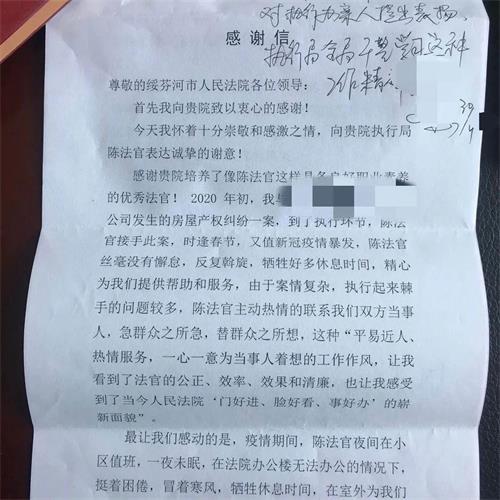 对执行办案人提出表扬，
感谢信
执行局全局干警
这种
工作精
尊敬的绥芬河市人民法院各位领导：
首先我向贵院致以衷心的感谢！
今天我怀着十分崇敬和感激之情，向贵院执行局
陈法官表达诚挚的谢意！
感谢贵院培养了像陈法官这样具备良好职业素养
的优秀法官！2020 年初，我与
公司发生的房屋产权纠纷一案，到了执行环节，陈法
官接手此案，时逢春节，又值新冠疫情暴发，陈法官
丝毫没有懈怠，反复斡旋，牺牲好多休息时间，精心
为我们提供帮助和服务，由于案情复杂，执行起来棘
手的问题较多，陈法官主动热情的联系我们双方当事
人，急群众之所急，替群众之所想，这种“平易近人、
热情服务，一心一意为当事人着想的工作作风，让我
看到了法官的公正、效率、效果和清廉，也让我感受
到了当今人民法院‘门好进、脸好看、事好办’的崭
新面貌”。
最让我们感动的是，疫情期间，陈法官夜间在小
区值班，一夜未眠，在法院办公楼无法办公的情况下，
挺着困倦，冒着寒风，牺牲休息时间，在室外为我们